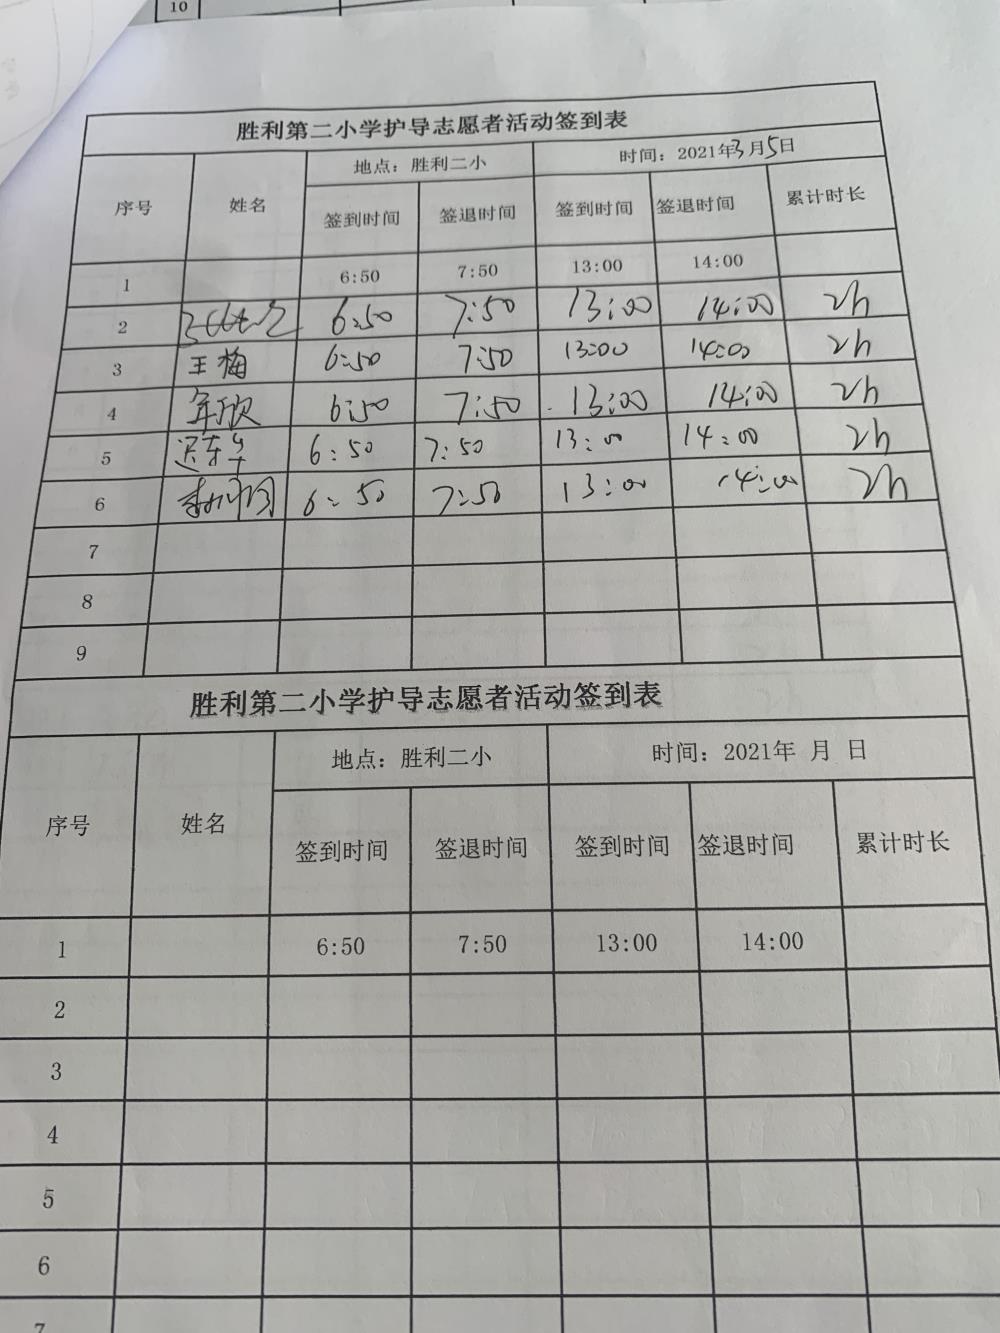 10
胜利第二小学护导志愿者活动签到表
序号 姓名 地点：胜利二小 时间：2021年3月5日
签到时间 签退时间 签到时间 签退时间 累计时长
1 6:50 7:50 13:00 14:00
2 6:50 7:50 13:00 14:00 2h
3 王梅 6:50 7:50 13:00 14:00 2h
4 6:50 7:50 13:00 14:00 2h
5 6:50 7:50 13:00 14:00 2h
6 6:50 7:50 13:00 14:00 2h
7
8
9
胜利第二小学护导志愿者活动签到表
序号 姓名 地点：胜利二小 时间：2021年 月 日
签到时间 签退时间 签到时间 签退时间 累计时长
1 6:50 7:50 13:00 14:00
2
3
4
5
6
7